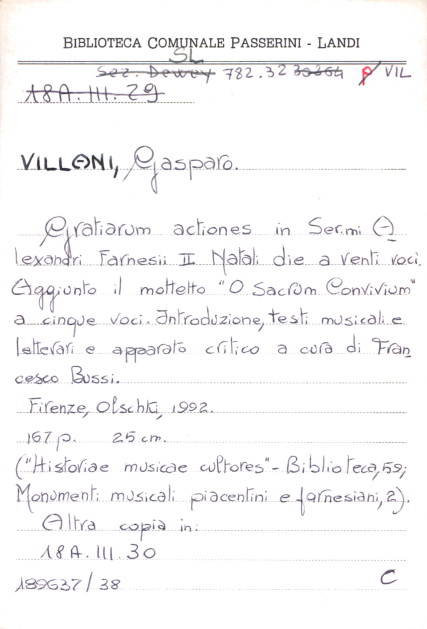 BIBLIOTECA COMUNALE PASSERINI - LANDI
SL
Sez. Dewey 782.32 30264 P VIL
18A.III.29
VILLANI, Gasparo.
Gratiarum actiones in Ser.mi A
lexandri Farnesii II Natali die a venti voci.
Aggiunto il mottetto "O Sacrum Convivium"
a cinque voci. Introduzione, testi musicali e
letterari e apparato critico a cura di Fran
cesco Bussi.
Firenze, Olschki, 1992.
167 p. 25 cm.
("Historiae musicae cultores" - Biblioteca, 59;
Monumenti musicali piacentini e farnesiani, 2).
Altra copia in:
18A.III.30
189637/38 C